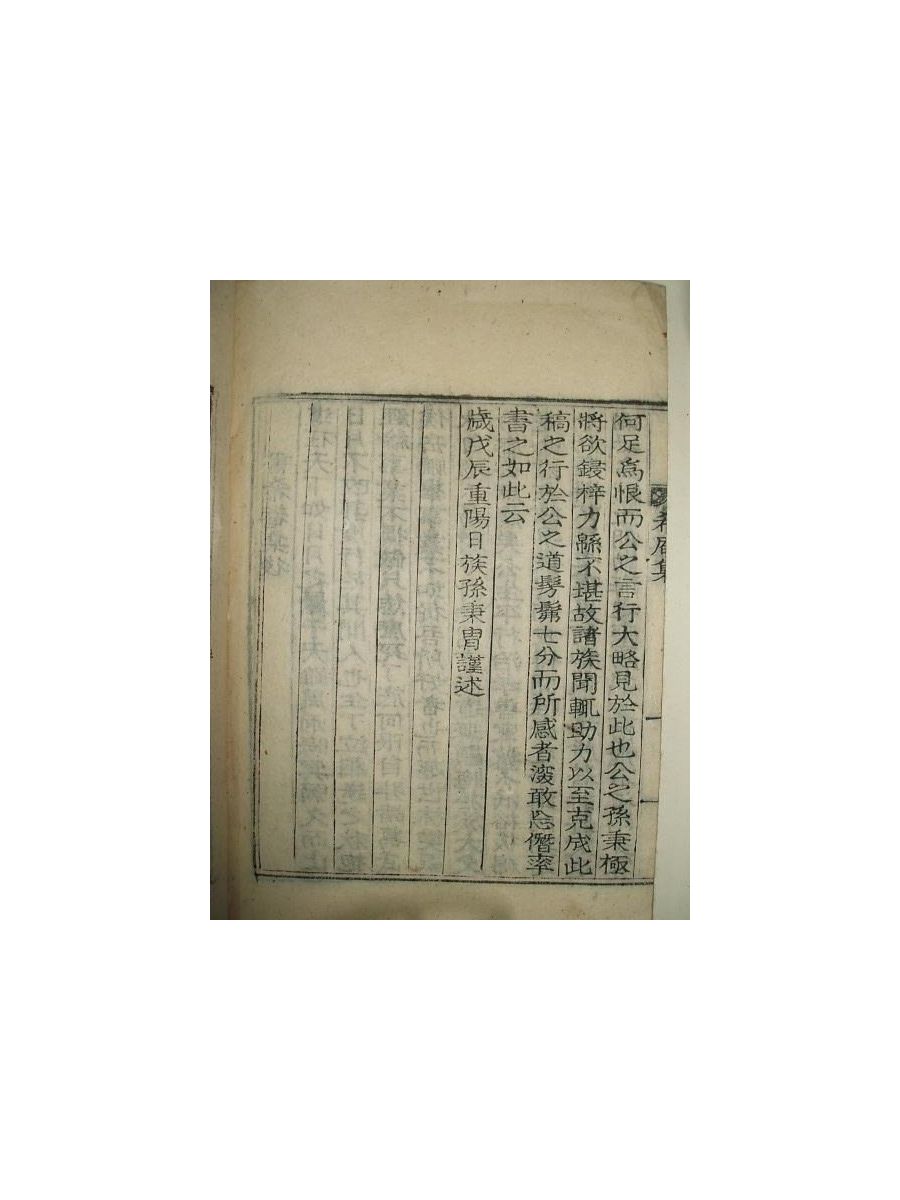 何足爲恨而公之言行大略見於此也公之孫秉極
將欲鋟梓力緜不堪故諸族聞輒助力以至克成此
稿之行於公之道髣髴七分而所感者深敢忘僭率
書之如此云
歲戊辰重陽日族孫秉胄謹述
集